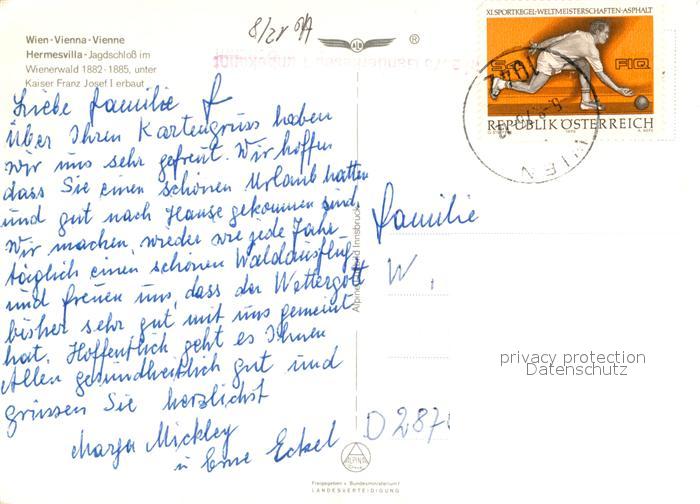 Wien-Vienna-Vienne
Hermesvilla-Jagdschloß im
Wienerwald 1882-1885, unter
Kaiser Franz Josef I erbaut
®
XI.SPORTKEGEL-WELTMEISTERSCHAFTEN-ASPHALT
FIQ
REPUBLIK ÖSTERREICH
WIEN
Liebe Familie
Über Ihren Kartengruss haben
wir uns sehr gefreut. Wir hoffen
dass Sie einen schönen Urlaub hatten
und gut nach Hause gekommen sind.
Wir machen, wieder wie jedes Jahr
täglich einen schönen Waldausflug
und freuen uns, dass der Wettergott
bisher sehr gut mit uns gemeint
hat. Hoffentlich geht es Ihnen
Allen gesundheitlich gut und
grüssen Sie herzlichst
Marga Mickley
u Erne Eckel
Familie
W.
D 287
privacy protection
Datenschutz
Innsbruck
ALPINA
Freigegeben v. Bundesministerium f.
LANDESVERTEIDIGUNG